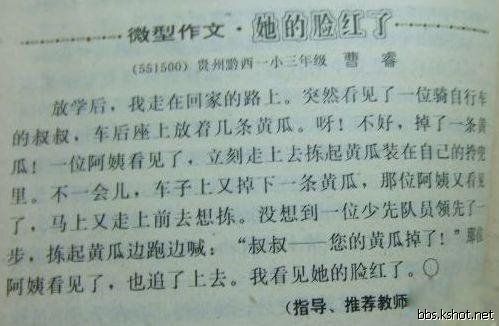 微型作文·她的脸红了
(551500) 贵州黔西一小三年级 曹 睿
放学后，我走在回家的路上。突然看见了一位骑自行车
的叔叔，车后座上放着几条黄瓜。呀！不好，掉了一条黄
瓜！一位阿姨看见了，立刻走上去拣起黄瓜装在自己的挎兜
里。不一会儿，车子上又掉下一条黄瓜，那位阿姨又看见
了，马上又走上前去想拣。没想到一位少先队员领先了一
步，拣起黄瓜边跑边喊：“叔叔——您的黄瓜掉了！”那位
阿姨看见了，也追了上去。我看见她的脸红了。○
(指导、推荐教师
bbs.kshot.net